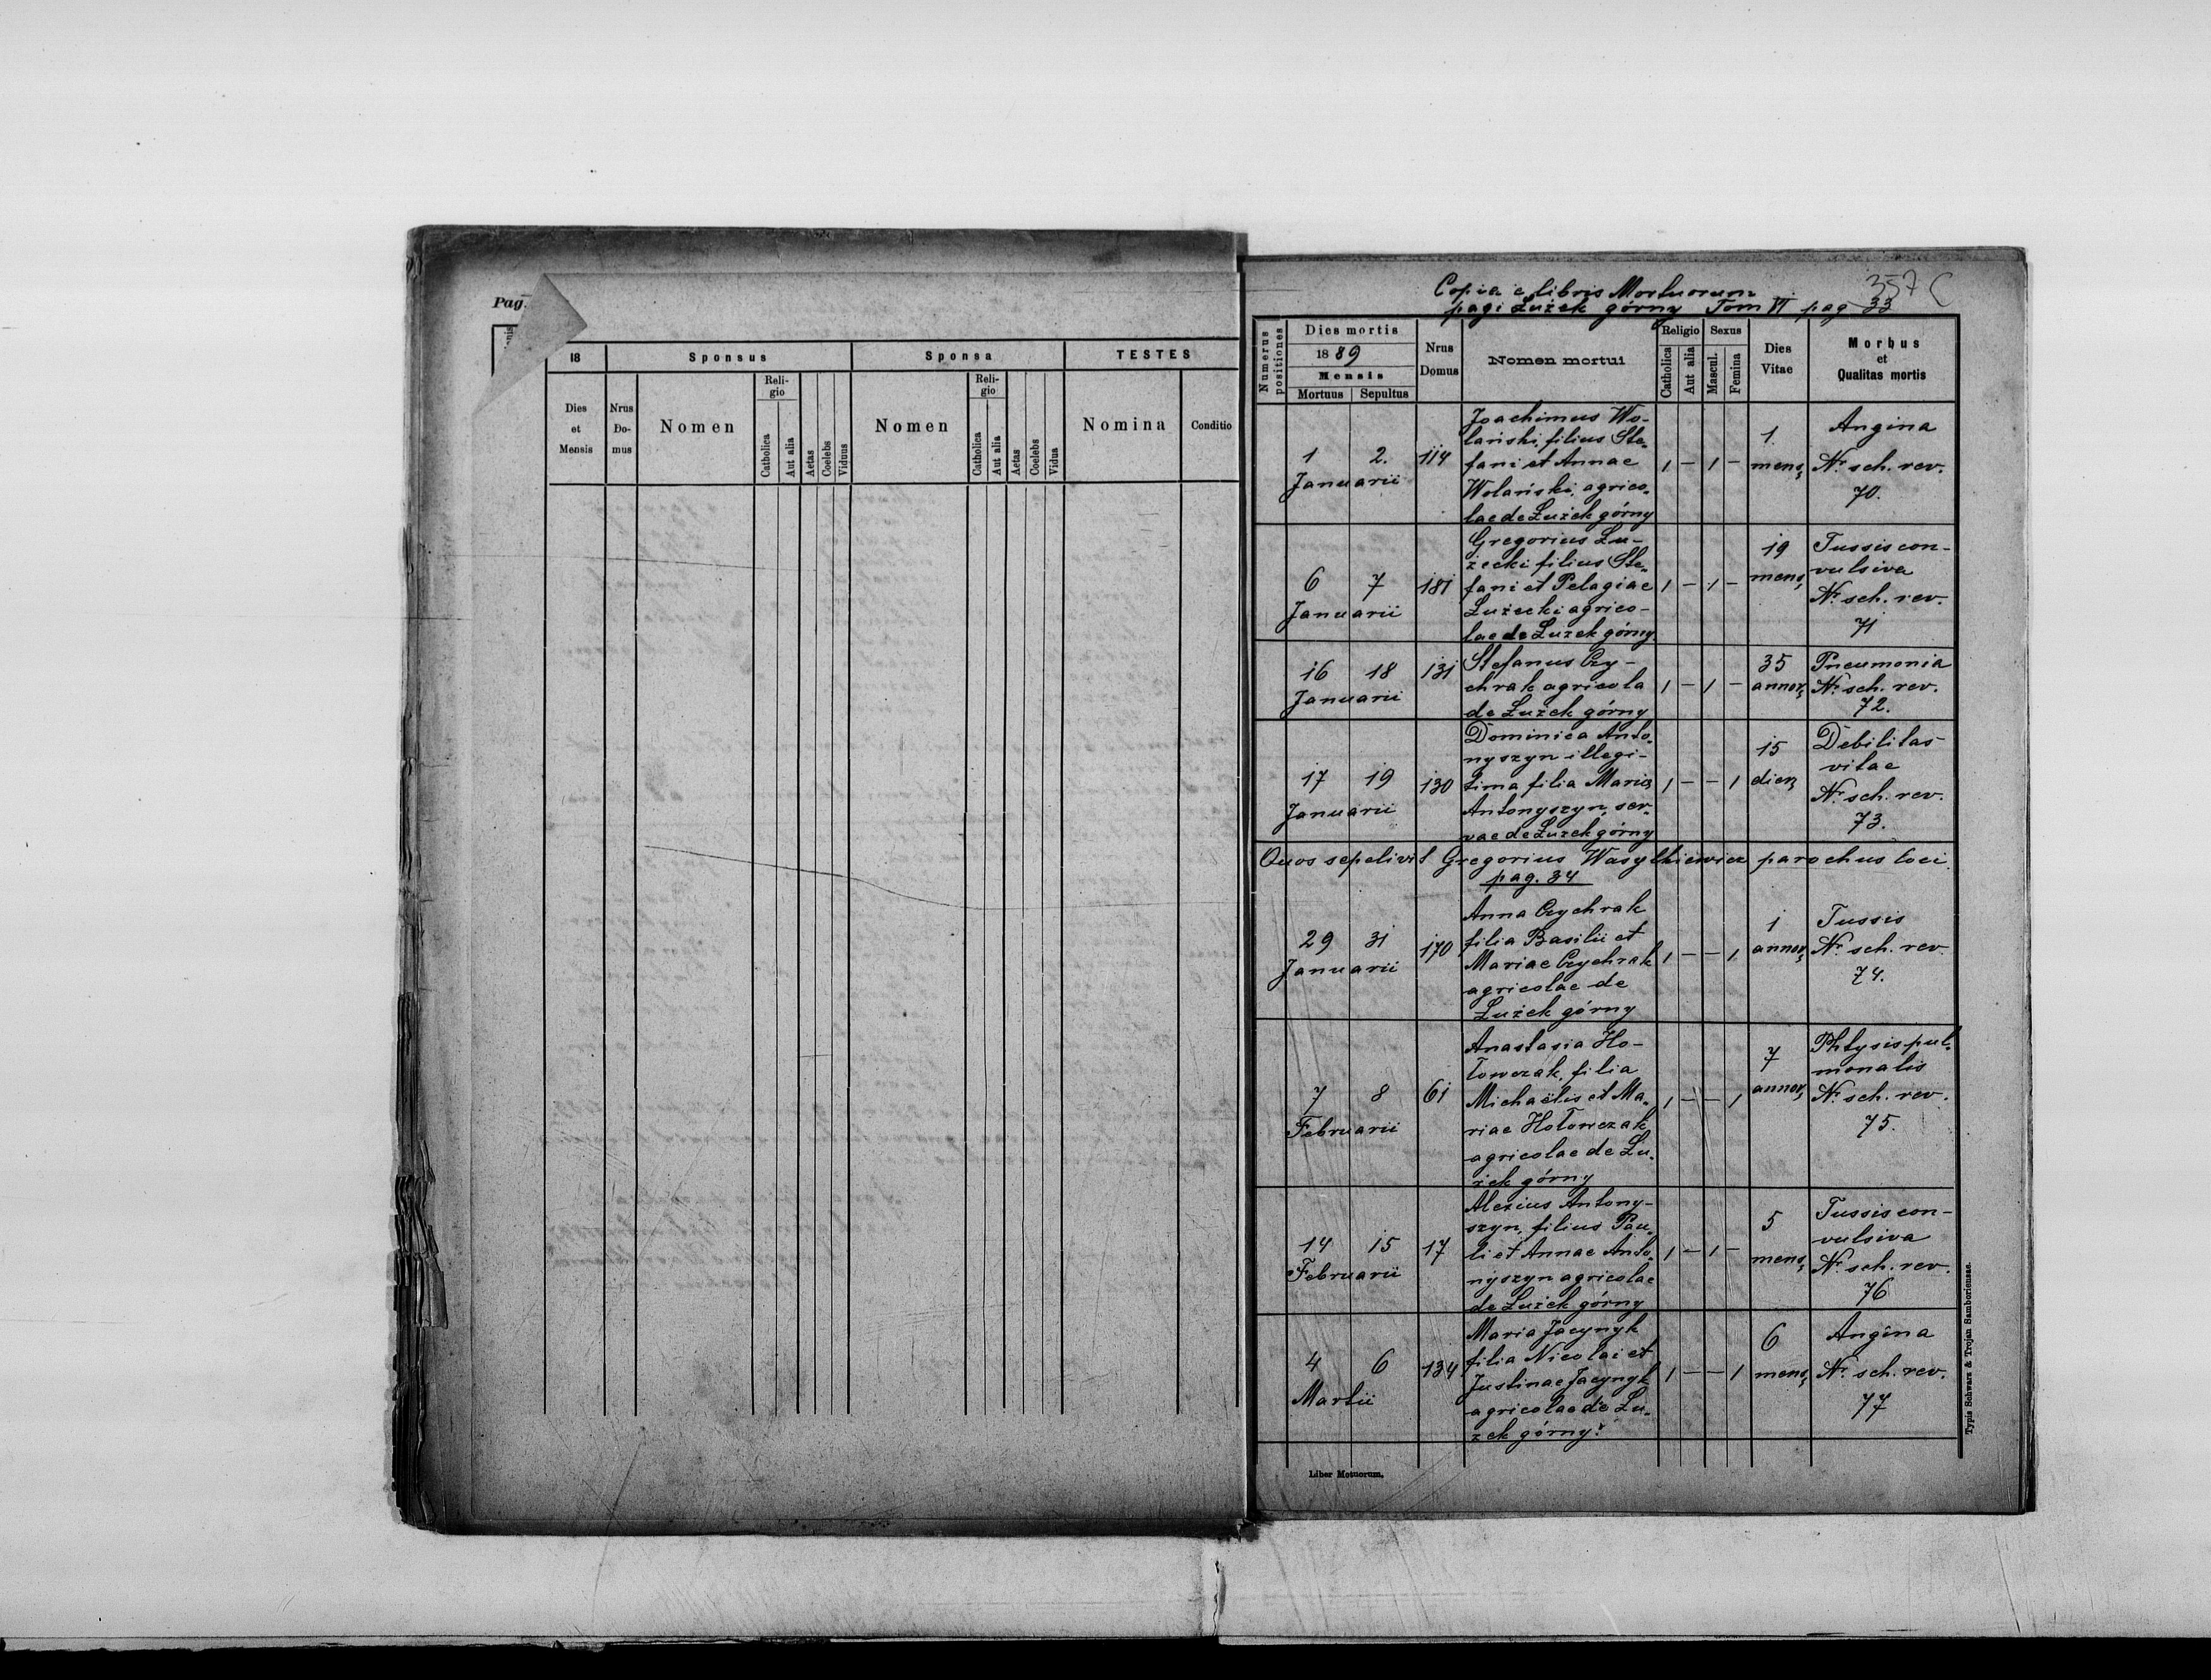 Pag.
18
Sponsus
Sponsa
TESTES
Dies et Mensis
Nrus Do-mus
Nomen
Reli-gio
Catholica
Aut alia
Aetas
Coelebs
Viduus
Nomen
Reli-gio
Catholica
Aut alia
Aetas
Coelebs
Vidua
Nomina
Conditio
357
Copia e libris Mortuorum
pagi Łużek górny Tom VI pag 33
Numerus positiones
Dies mortis
1889
Mensis
Mortuus
Sepultus
Nrus Domus
Nomen mortui
Religio
Catholica
Aut alia
Sexus
Mascul.
Femina
Dies Vitae
Morbus
et
Qualitas mortis
1 2.
Januarii
114
Joachimus Wo-
lański, filius Ste-
fani et Annae
Wolański, agrico-
lae de Łużek górny
1 – 1 –
1.
mens.
Angina
Nr. sch. rev.
70.
6 7
Januarii
181
Gregorius Łu-
żecki filius Ste-
fani et Pelagiae
Łużecki agrico-
lae de Łużek górny.
1 – 1 –
19
mens.
Tussis con-
vulsiva
Nr. sch. rev.
71
16 18
Januarii
131
Stefanus Czy-
chrak agricola
de Łużek górny
1 – 1 –
35
annor.
Pneumonia
Nr. sch. rev.
72.
17 19
Januarii
130
Dominica Anto-
nyszyn illegi-
tima filia Mariae
Antonyszyn, ser-
vae de Łużek górny
1 – – 1
15
dier.
Debilitas
vitae
Nr. sch. rev.
73.
Quos sepelivit Gregorius Wasylkiewicz parochus loci
pag. 34
29 31
Januarii
170
Anna Czychrak
filia Basilii et
Mariae Czychrak
agricolae de
Łużek górny
1 – – 1
1
annor.
Tussis
Nr. sch. rev.
74.
7 8
Februarii
61
Anastasia Ho-
łowczak, filia
Michaëlis et Ma-
riae Hołowczak
agricolae de Łu-
żek górny
1 – – 1
7
annor.
Phtysis pul-
monalis
Nr. sch. rev.
75.
14 15
Februarii
17
Alexius Antony-
szyn, filius Pau-
li et Annae Anto-
nyszyn agricolae
de Łużek górny
1 – 1 –
5
mens.
Tussis con-
vulsiva
Nr. sch. rev.
76
4 6
Martii
134
Maria Jacynyk
filia Nicolai et
Justinae Jacynyk
agricolae de Łu-
żek górny.
1 – – 1
6
mens.
Angina
Nr. sch. rev.
77
Liber Motuorum.
Typis Schwarz & Trojan Samboriensae.